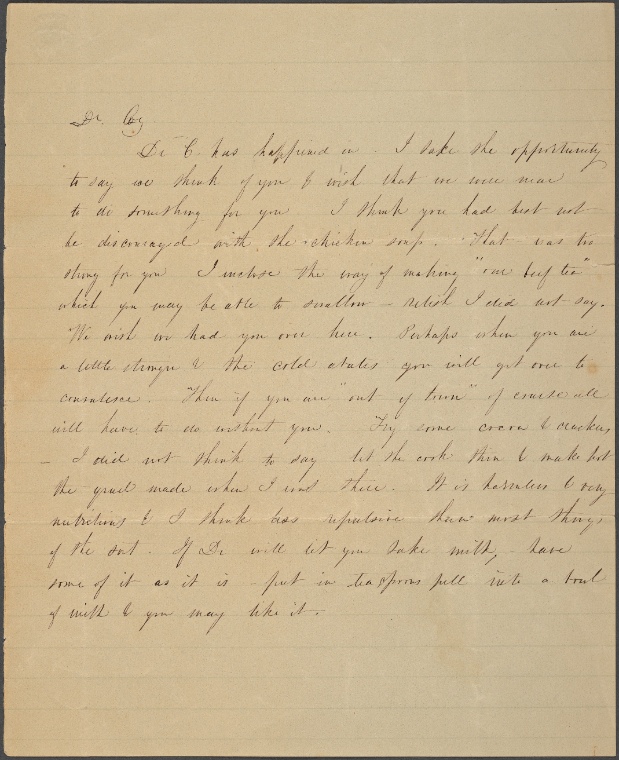 Dr. Coz
Dr C. has happened in. I take the opportunity
to say we think of you & wish that we were near
to do something for you. I think you had best not
be discouraged with the chicken soup. That was too
strong for you I inclose the way of making "our beef tea"
which you may be able to swallow - relish I did not say.
We wish we had you over here. Perhaps when you are
a little stronger & the cold abates you will get over to
convalesce. Then if you are "out of town" of course all
will have to do without you. Try some cocoa & crackers
- I did not think to say let the cook then & make hot
the gruel made when I was there. It is harmless & very
nutritious & I think less repulsive than most things
of the sort. If Dr will let you take milk, - have
some of it as it is - put in teaspoons full into a bowl
of milk & you may like it.